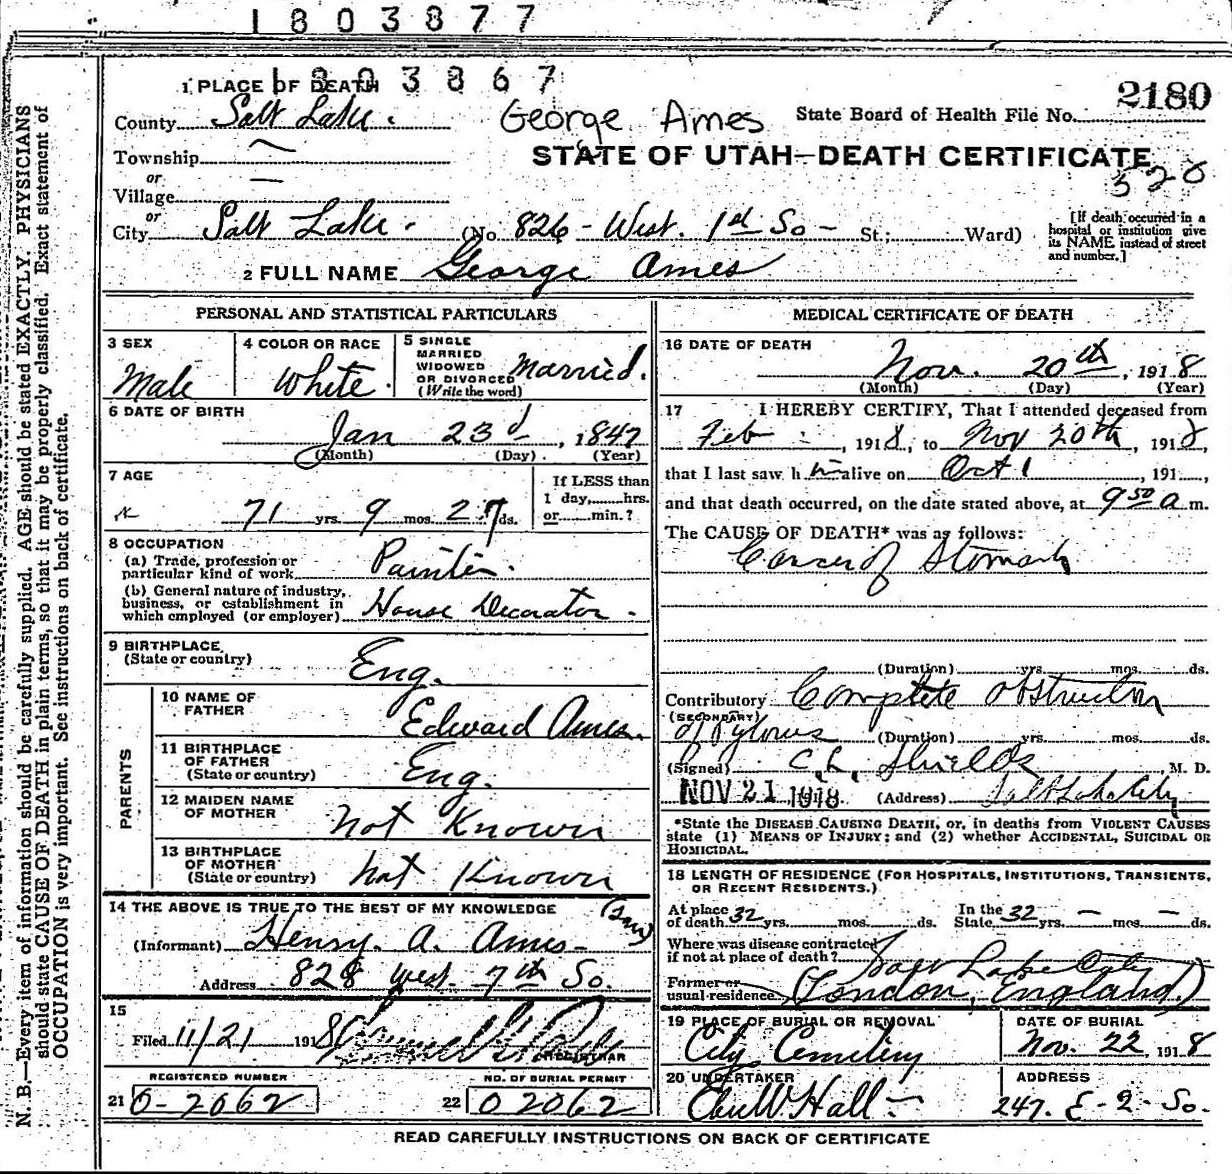 1803877
1803867
1 PLACE OF DEATH
County Salt Lake.
George Ames
State Board of Health File No. 2180
Township
or
Village
STATE OF UTAH—DEATH CERTIFICATE
520
or
City Salt Lake. (No. 826 - West. 1st So - St.; Ward)
[If death occurred in a hospital or institution give its NAME instead of street and number.]
2 FULL NAME George Ames
PERSONAL AND STATISTICAL PARTICULARS
3 SEX
Male
4 COLOR OR RACE
White.
5 SINGLE
MARRIED
WIDOWED
OR DIVORCED
(Write the word)
Married.
6 DATE OF BIRTH
Jan 23d, 1847
(Month) (Day) (Year)
7 AGE
71 yrs. 9 mos. 27 ds.
If LESS than
1 day, hrs.
or min.?
8 OCCUPATION
(a) Trade, profession or
particular kind of work Painter.
(b) General nature of industry,
business, or establishment in
which employed (or employer) House Decorator.
9 BIRTHPLACE
(State or country) Eng.
PARENTS
10 NAME OF
FATHER Edward Ames.
11 BIRTHPLACE
OF FATHER
(State or country) Eng.
12 MAIDEN NAME
OF MOTHER Not Known
13 BIRTHPLACE
OF MOTHER
(State or country) Not Known
14 THE ABOVE IS TRUE TO THE BEST OF MY KNOWLEDGE
(Son)
(Informant) Henry. A. Ames-
Address 828 West. 7th So.
15
Filed 11/21 1918
REGISTRAR
REGISTERED NUMBER
21 0-2062
NO. OF BURIAL PERMIT
22 02062
MEDICAL CERTIFICATE OF DEATH
16 DATE OF DEATH
Nov. 20th, 1918
(Month) (Day) (Year)
17 I HEREBY CERTIFY, That I attended deceased from
Feb, 1918, to Nov 20th, 1918,
that I last saw him alive on Oct 1, 191
and that death occurred, on the date stated above, at 9 50 a m.
The CAUSE OF DEATH* was as follows:
Cancer of Stomach
(Duration) yrs. mos. ds.
Contributory Complete obstruction
(SECONDARY)
of Pylorus (Duration) yrs. mos. ds.
(Signed) C. L. Shields M. D.
NOV 21 1918 (Address) Salt Lake City
*State the DISEASE CAUSING DEATH, or, in deaths from VIOLENT CAUSES
state (1) MEANS OF INJURY; and (2) whether ACCIDENTAL, SUICIDAL OR
HOMICIDAL.
18 LENGTH OF RESIDENCE (FOR HOSPITALS, INSTITUTIONS, TRANSIENTS,
OR RECENT RESIDENTS.)
At place
of death 32 yrs. mos. ds.
In the
State 32 yrs. — mos. — ds.
Where was disease contracted
if not at place of death? Salt Lake City
Former or
usual residence (London, England)
19 PLACE OF BURIAL OR REMOVAL
City Cemetery
DATE OF BURIAL
Nov. 22 1918
20 UNDERTAKER
Hall
ADDRESS
247. E - 2 - So.
READ CAREFULLY INSTRUCTIONS ON BACK OF CERTIFICATE
N. B.—Every item of information should be carefully supplied. AGE should be stated EXACTLY. PHYSICIANS
should state CAUSE OF DEATH in plain terms, so that it may be properly classified. Exact statement of
OCCUPATION is very important. See instructions on back of certificate.